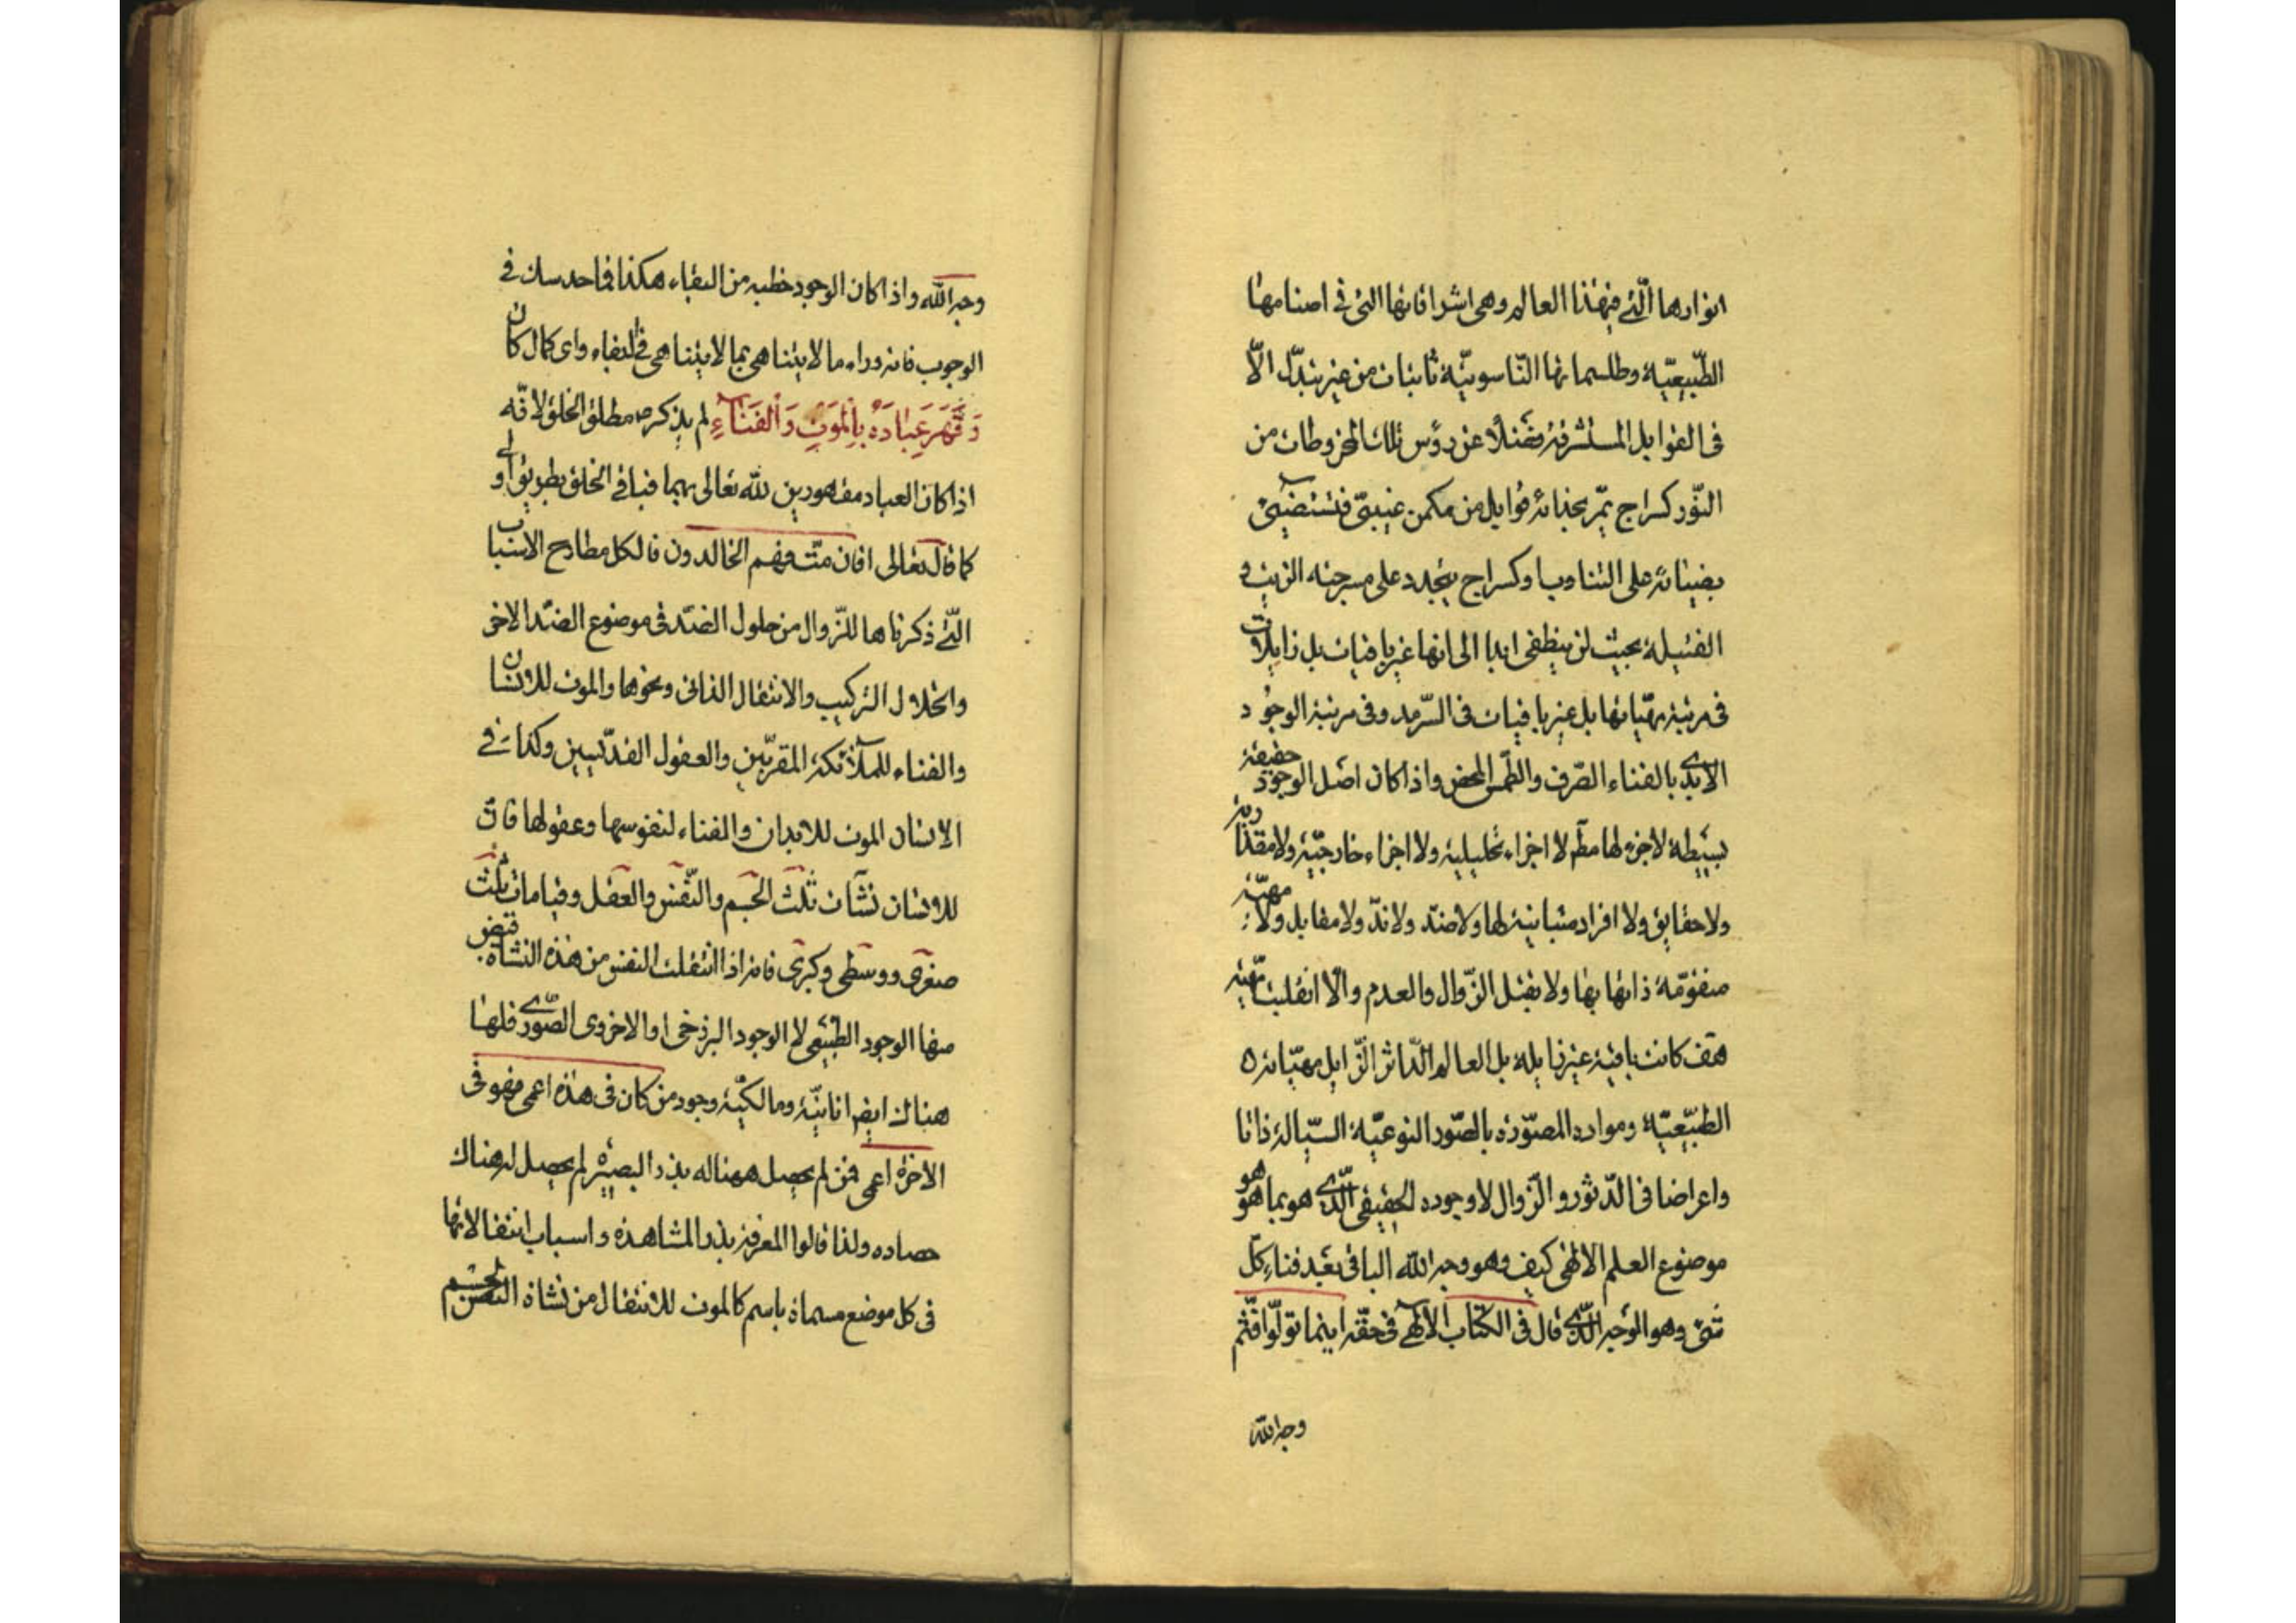 انوارها الّتی فی هذا العالم وهی اشراقاتها التی فی اصنامها
الطّبیعیّة وطلسماتها النّاسوتیّة ثابتات من غیر تبدّل الّا
فی القوابل المستشرقة فضلًا عن رؤس تلك المخروطات من
النّور کسراج یمرّ بحذائه قوابل من مکمن غیبیّ فتستضیئ
بضیائه علی التناوب او کسراج یتجدد علی مسرجته الزیت و
الفتیلة بحیث لن ینطفی ابدا الی انها غیر باقیات بل زایلات
فی مرتبة مهیّاتها بل غیر باقیات فی السّرمد وفی مرتبة الوجود
الابدی بالفناء الصّرف والطّمس المحض واذا کان اصل الوجود حقیقة
بسیطة لا جزء لها مطلقا لا اجزاء تحلیلیة ولا اجزاء خارجیّة ولا مقداریة
ولا حقایق ولا افراد متباینة لها ولا ضدّ ولا ندّ ولا مقابل ولا مهیّة
متقوّمة ذاتها بها ولا یقبل الزّوال والعدم والّا انقلبت مهیّة
هف کانت باقیة غیر زایلة بل العالم الدّاثر الزّایل مهیّاته
الطبّیعیّة ومواده المصوّرة بالصّور النوعیّة السیّالة ذاتا
واعراضا فی الدّثور والزّوال لا وجوده الحقیقی الّذی هو بما هو هو
موضوع العلم الالهی کیف وهو وجه الله الباقی بعد فناء کلّ
شئ وهو الوجه الّذی قال فی الکتاب الالهی فی حقّه اینما تولّوا فثمّ
وجه الله
وجه الله واذا کان الوجود خطبه من البقاء هکذا فما حدسك فی
الوجوب فانه وراء ما لا یتناهی بما لا یتناهی فی البقاء وای کمال کان
وَقَهَرَ عِبَادَهُ بِالْمَوْتِ وَالْفَنَاءِ لم یذکر مطلق الخلق لانّه
اذا کان العباد مقهورین لله تعالی بهما فباقی الخلق بطریق اولی
کما قال تعالی افان متّ فهم الخالدون فالکل مطارح الاسباب
الّتی ذکرناها للزّوال من حلول الضدّ فی موضوع الضدّ الاخر
وانحلال الترکیب والانتقال الذاتی ونحوها والموت للانسان
والفناء للملآئکة المقرّبین والعقول القدّیسین وکذا فی
الانسان الموت للابدان والفناء لنفوسها وعقولها فانّ
للانسان نشآت ثلث الجسم والنّفس والعقل وقیامات ثلث
صغری ووسطی وکبری فانه اذا انتقلت النفس من هذه النشأة قبض
منها الوجود الطبیعی لا الوجود البرزخی او الاخروی الصّوری فلها
هناك ایضا انانیّة ومالکیّة وجود من کان فی هذه اعمی فهو فی
الاخرة اعمی فمن لم یحصل ههنا له بذر البصیرة لم یحصل له هناك
حصاده ولذا قالوا المعرفة بذر المشاهدة واسباب انتقالاتها
فی کل موضع مسماة باسم کالموت للانتقال من نشاة الجسم